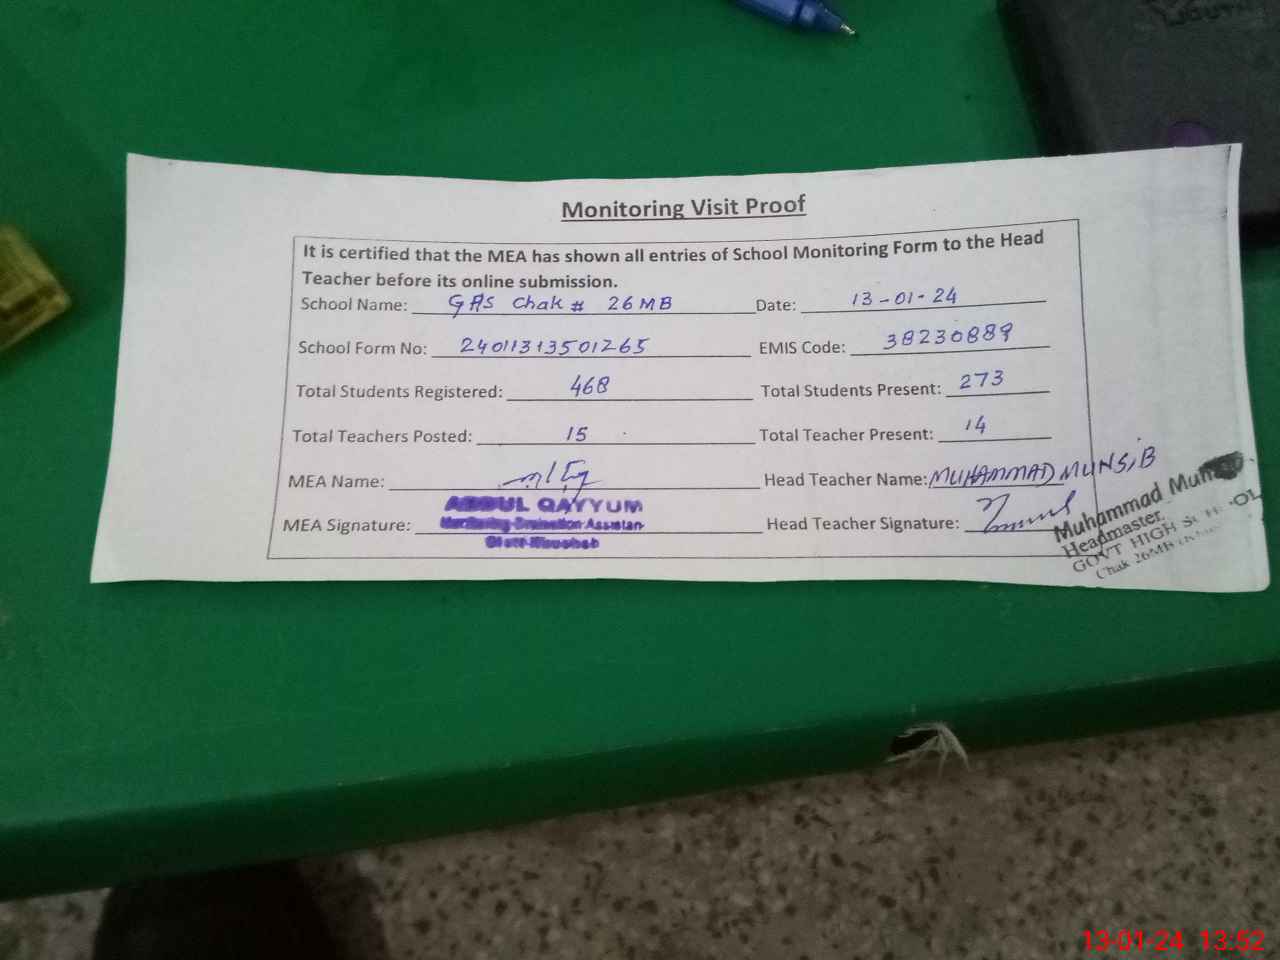 Monitoring Visit Proof
It is certified that the MEA has shown all entries of School Monitoring Form to the Head
Teacher before its online submission.
School Name: GHS Chak # 26 MB Date: 13-01-24
School Form No: 24011313501265 EMIS Code: 38230889
Total Students Registered: 468 Total Students Present: 273
Total Teachers Posted: 15 Total Teacher Present: 14
MEA Name: Head Teacher Name: MUHAMMAD MUNSIB
ABDUL QAYYUM
MEA Signature: Monitoring Evaluation Assistan Head Teacher Signature:
Distt Khushab
Muhammad
Headmaster,
GOVT HIGH SCHOOL
Chak 26MB
13-01-24 13:52